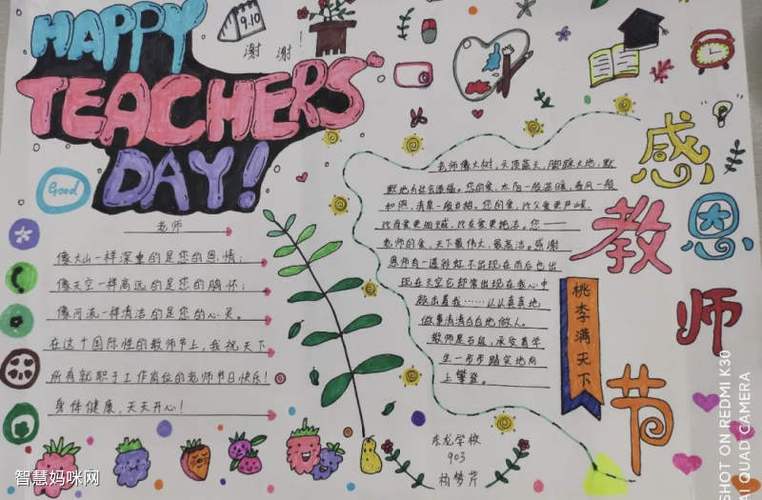 HAPPY
TEACHERS
DAY!
9.10
谢 谢!
Good
老师
像大山一样深重的是您的恩情;
像天空一样高远的是您的胸怀;
像河流一样清洁的是您的心灵。
在这个国际性的教师节上,我祝天下
所有就职于工作岗位的老师节日快乐!
身体健康,天天开心!
老师像大树,头顶蓝天,脚踩大地,默
默地为社会添绿。您的爱,太阳一般温暖,春风一般
和煦,清泉一般甘甜。您的爱,比父爱更严峻,
比母爱更细腻,比友爱更纯洁。您——
老师的爱,天下最伟大,最高洁。感谢
恩师有一道彩虹不出现在雨后也出
现在天空它却常出现在我心中
鞭击着我……认认真真地
做事清清白白地做人。
教师是石级,承受着学
生一步步踏实地向
上攀登。
桃李满天下
感恩
教师
节
东龙学校
903
智慧妈咪网
SHOT ON REDMI K30
AI QUAD CAMERA